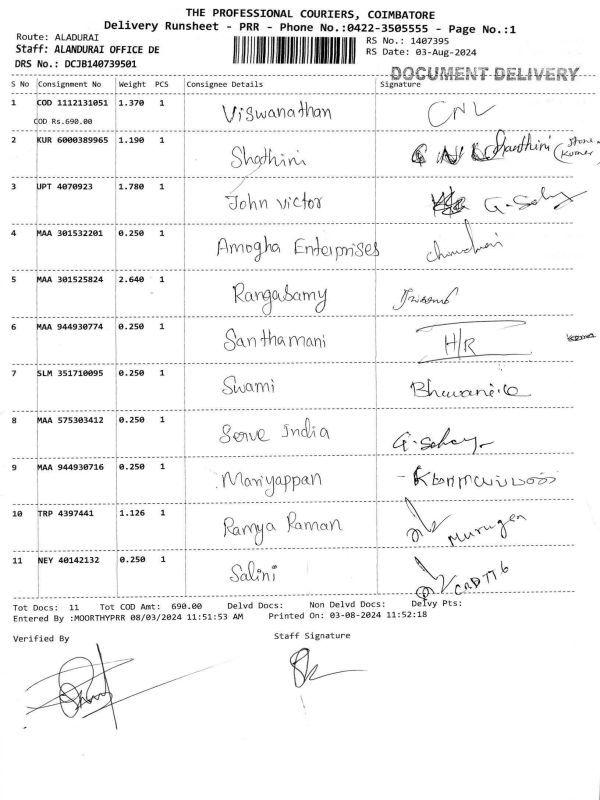 THE PROFESSIONAL COURIERS, COIMBATORE
Delivery Runsheet - PRR - Phone No.:0422-3505555 - Page No.:1
Route: ALADURAI
RS No.: 1407395
Staff: ALANDURAI OFFICE DE
RS Date: 03-Aug-2024
DRS No.: DCJB140739501
DOCUMENT DELIVERY
S No Consignment No Weight PCS Consignee Details Signature
1 COD 1112131051 1.370 1 Viswanathan CNL
COD Rs.690.00
2 KUR 6000389965 1.190 1 Shathini
3 UPT 4070923 1.780 1 John victor
4 MAA 301532201 0.250 1 Amogha Enterprises
5 MAA 301525824 2.640 1 Rangasamy
6 MAA 944930774 0.250 1 Santhamani H/R
7 SLM 351710095 0.250 1 Swami
8 MAA 575303412 0.250 1 Serve India
9 MAA 944930716 0.250 1 Mariyappan
10 TRP 4397441 1.126 1 Ramya Raman Murugen
11 NEY 40142132 0.250 1 Salini
Tot Docs: 11 Tot COD Amt: 690.00 Delvd Docs: Non Delvd Docs: Delvy Pts:
Entered By :MOORTHYPRR 08/03/2024 11:51:53 AM Printed On: 03-08-2024 11:52:18
Verified By Staff Signature